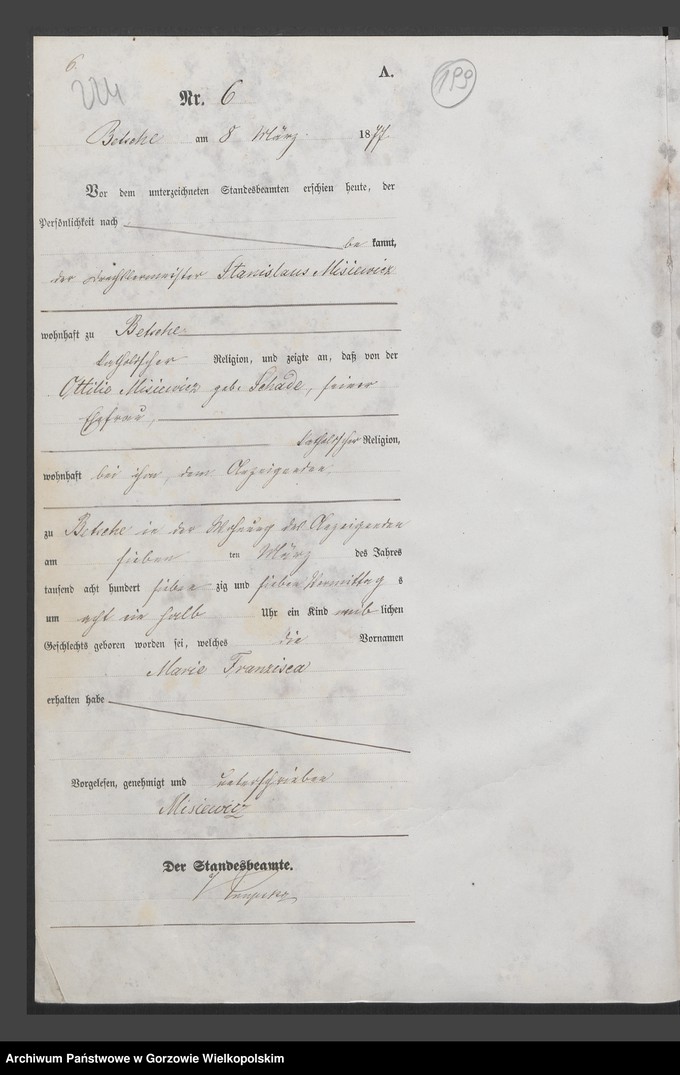 6.
A.
224
199
Nr. 6
Betsche am 8 März 1877.
Vor dem unterzeichneten Standesbeamten erschien heute, der
Persönlichkeit nach
be kannt,
der Drechslermeister Stanislaus Misiewicz
wohnhaft zu Betsche
katholischer Religion, und zeigte an, daß von der
Ottilie Misiewicz geb. Schade, seiner
Ehefrau,
katholischer Religion,
wohnhaft bei ihm, dem Anzeigenden,
zu Betsche in der Wohnung des Anzeigenden
am sieben ten März des Jahres
tausend acht hundert sieben zig und sieben Vormittag s
um acht ein halb Uhr ein Kind weib lichen
Geschlechts geboren worden sei, welches die Vornamen
Marie Franzisca
erhalten habe
Vorgelesen, genehmigt und unterschrieben
Misiewicz
Der Standesbeamte.
Archiwum Państwowe w Gorzowie Wielkopolskim